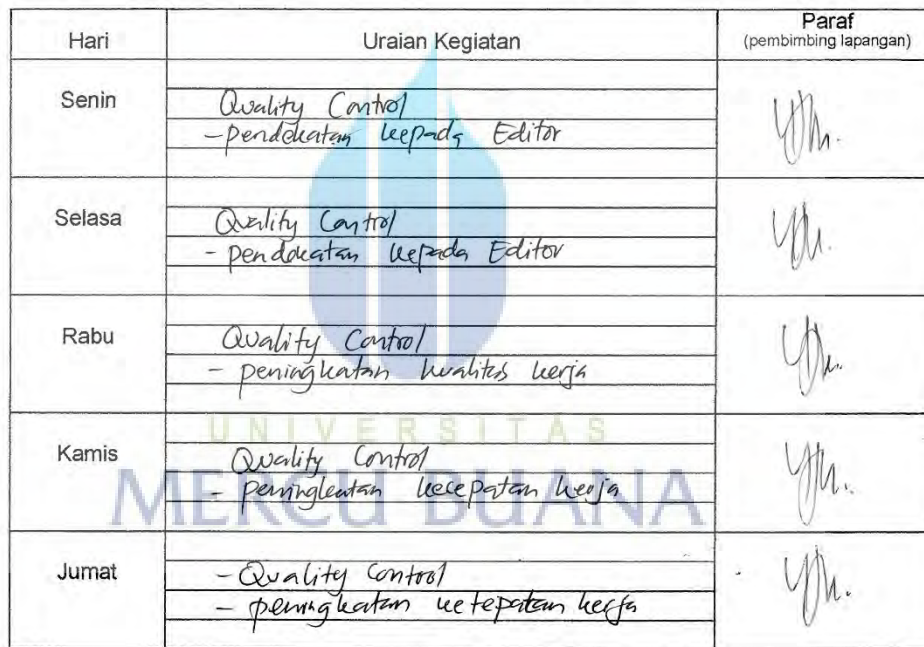 Hari Uraian Kegiatan Paraf
(pembimbing lapangan)
Senin
Quality Control
- pendekatan kepada Editor
Selasa
Quality Control
- pendekatan kepada Editor
Rabu
Quality Control
- peningkatan kualitas kerja
Kamis
Quality Control
- peningkatan kecepatan kerja
Jumat
- Quality Control
- peningkatan ketepatan kerja
UNIVERSITAS
MERCU BUANA